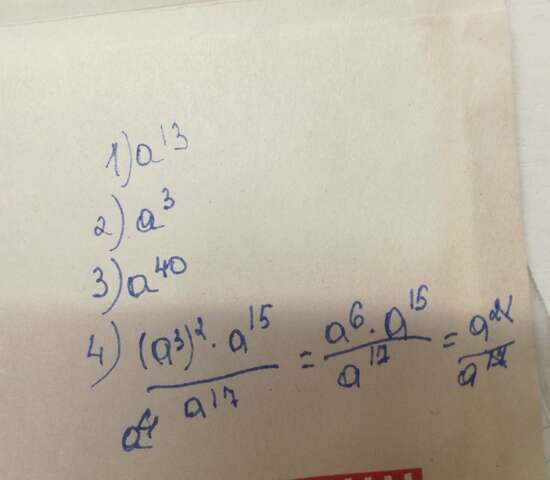 1) a¹³
2) a³
3) a⁴⁰
4) (a³)² · a¹⁵ / a¹⁷ = a⁶ · a¹⁵ / a¹⁷ = a²¹ / a¹⁷
a⁴